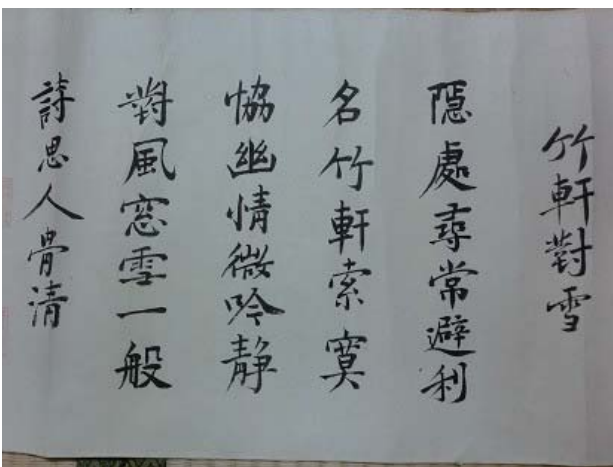 竹軒對雪
隱處尋常避利
名竹軒索寞
協幽情微吟静
對風窓雪一般
詩思人骨清